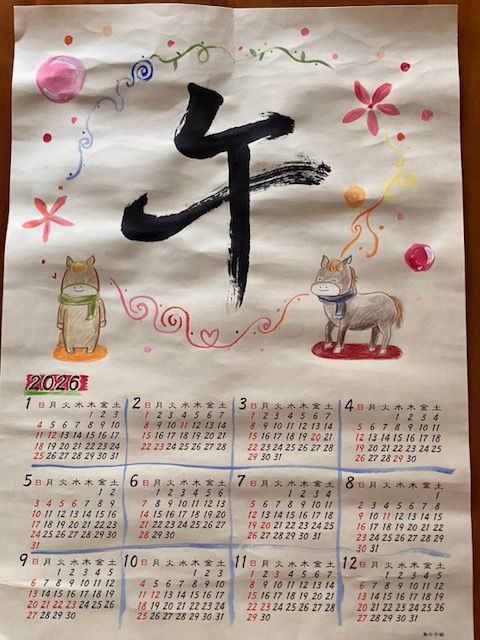 午
2026
1 日 月 火 水 木 金 土
1 2 3
4 5 6 7 8 9 10
11 12 13 14 15 16 17
18 19 20 21 22 23 24
25 26 27 28 29 30 31
2 日 月 火 水 木 金 土
1 2 3 4 5 6 7
8 9 10 11 12 13 14
15 16 17 18 19 20 21
22 23 24 25 26 27 28
3 日 月 火 水 木 金 土
1 2 3 4 5 6 7
8 9 10 11 12 13 14
15 16 17 18 19 20 21
22 23 24 25 26 27 28
29 30 31
4 日 月 火 水 木 金 土
1 2 3 4
5 6 7 8 9 10 11
12 13 14 15 16 17 18
19 20 21 22 23 24 25
26 27 28 29 30
5 日 月 火 水 木 金 土
1 2
3 4 5 6 7 8 9
10 11 12 13 14 15 16
17 18 19 20 21 22 23
24 25 26 27 28 29 30
31
6 日 月 火 水 木 金 土
1 2 3 4 5 6
7 8 9 10 11 12 13
14 15 16 17 18 19 20
21 22 23 24 25 26 27
28 29 30
7 日 月 火 水 木 金 土
1 2 3 4
5 6 7 8 9 10 11
12 13 14 15 16 17 18
19 20 21 22 23 24 25
26 27 28 29 30 31
8 日 月 火 水 木 金 土
1
2 3 4 5 6 7 8
9 10 11 12 13 14 15
16 17 18 19 20 21 22
23 24 25 26 27 28 29
30 31
9 日 月 火 水 木 金 土
1 2 3 4 5
6 7 8 9 10 11 12
13 14 15 16 17 18 19
20 21 22 23 24 25 26
27 28 29 30
10 日 月 火 水 木 金 土
1 2 3
4 5 6 7 8 9 10
11 12 13 14 15 16 17
18 19 20 21 22 23 24
25 26 27 28 29 30 31
11 日 月 火 水 木 金 土
1 2 3 4 5 6 7
8 9 10 11 12 13 14
15 16 17 18 19 20 21
22 23 24 25 26 27 28
29 30
12 日 月 火 水 木 金 土
1 2 3 4 5
6 7 8 9 10 11 12
13 14 15 16 17 18 19
20 21 22 23 24 25 26
27 28 29 30 31
鳥の子紙